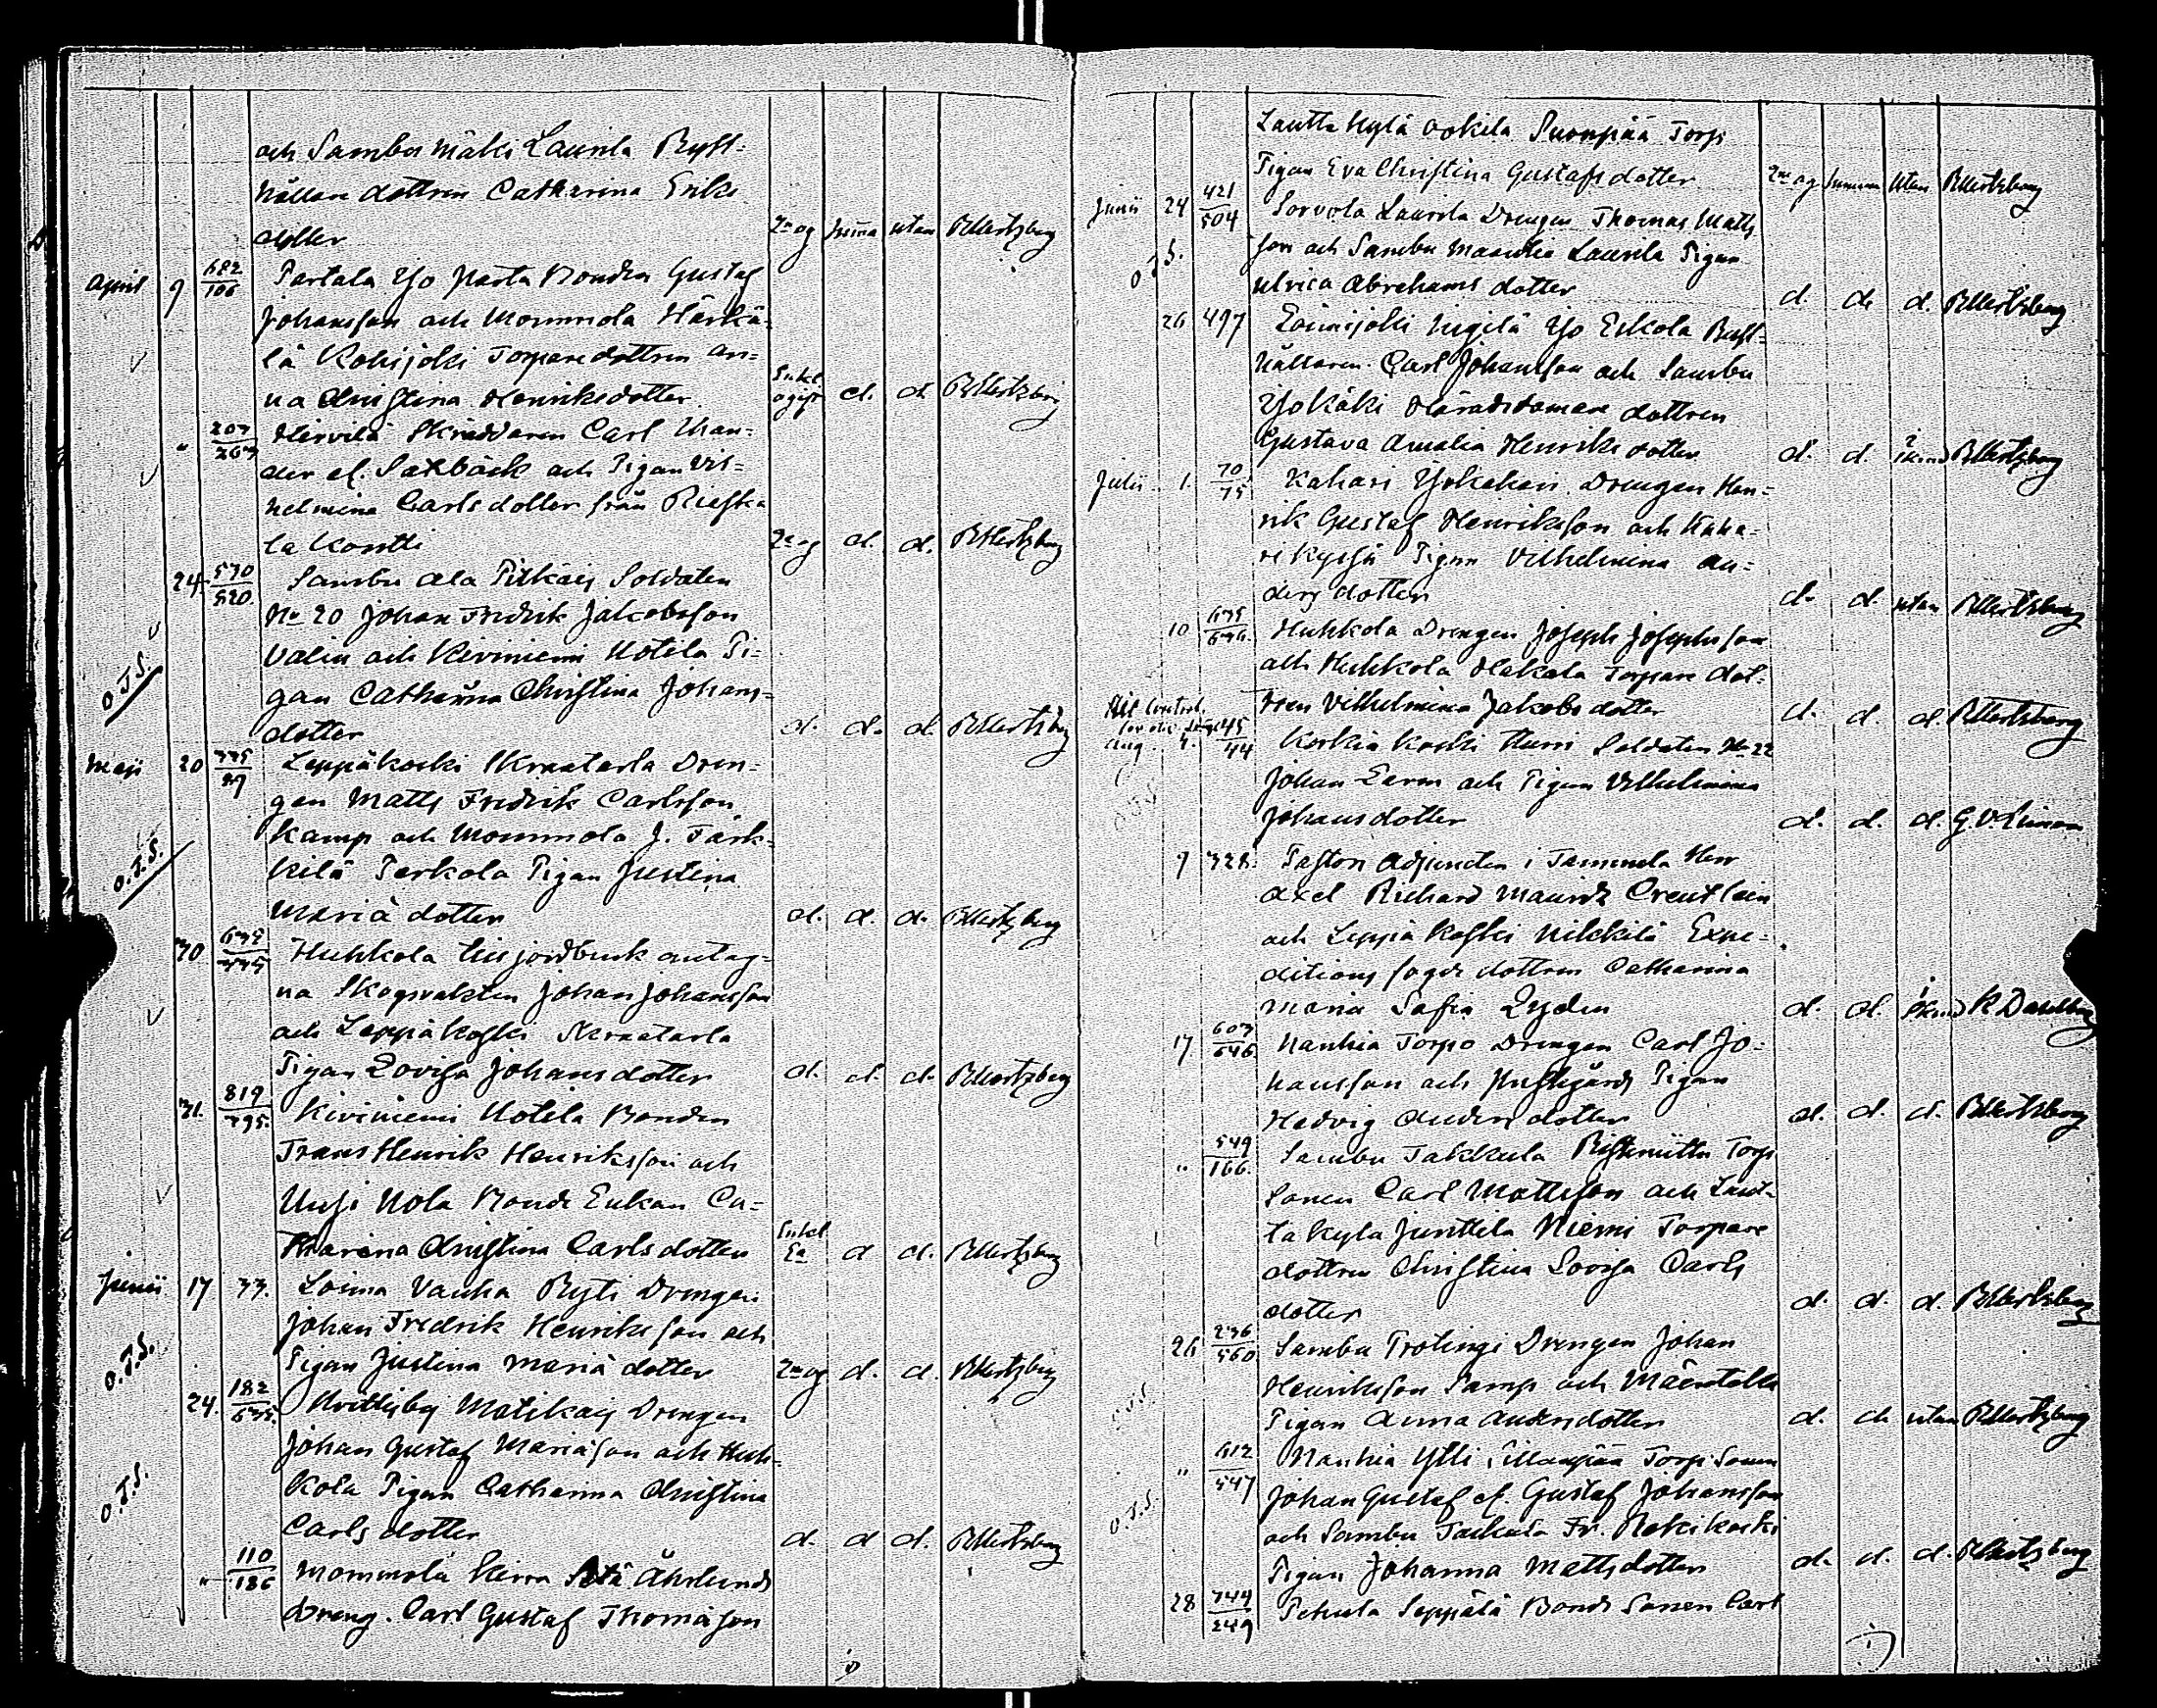 och Sambu Mäki Laurila Rust-
hållare dottren Catharina Eriks
dotter 2n äg hemma utan B Hertzberg
April 9 682/106 Partala Yjo Parta Bonden Gustaf
Johansson och Mommola Härkä-
lä Kohijoki Torpare dottren An-
na Christina Henriksdotter Enkel ägift d. d. B Hertzberg
" 207/267 Hirvilä Skräddaren Carl
der el. Saxbäck och Pigan Vil-
helmina Carls dotter från
la Kontti 2n äg d. d. B Hertzberg
24. 570/520. Sambu Ala Pitkäis Soldaten
No 20 Johan Fredrik Jakobsson
Valin och Kiviniemi Uotila Pi-
O.T.S. gan Catharina Christina Johans-
dotter d. d. d. B Hertzberg
Maji 20 775/27 Leppäkoski Skraatarla Dren-
gen Matts Fredrik Carlsson
Kamp och Mommola J. Tärk-
O.T.S. kilä Perkola Pigan Justina
Mariä dotter d. d. d. B Hertzberg
30 638/775 Huhkola till jordbruk antag-
na Skogvakten Johan Johansson
och Leppäkoski Skraatarla
Pigan Lovisa Johans dotter d. d. d. B Hertzberg
31. 819/795. Kiviniemi Uotila Bonden
Frans Henrik Henriksson och
Uusi Nola Bonde Enkan Ca-
tharina Christina Carls dotter Enkel Ea d d. B Hertzberg
Junii 17 33. Loima Vanha Ryti Drengen
Johan Fredrik Henriksson och
O.T.S. Pigan Justina Mariä dotter 2n äg d. d. B Hertzberg
24. 182/635. Hvittisby Matikais Drengen
Johan Gustaf Mariäson och Huh-
O.T.S. kola Pigan Catharina Christina
Carls dotter d. d d. B Hertzberg
" 110/186 Mommola Herra Åkerlunds
Dreng. Carl Gustaf Thomäson
Lautta kylä Torp
Pigan Eva Christina Gustafs dotter 2n äg hemma utan B Hertzberg
Junii 24 421/504 Sorvola Laurila Drengen Thomas Matts
O.T.S. son och Sambu Laurila Pigan
Ulrica Abrahams dotter d. d. d. B Hertzberg
26 497 Loimijoki Yjo Erkola Rust-
hållaren Carl Johansson och Sambu
Yjokäki Häradsdomare dottren
Gustava Amalia Henriks dotter d. d. i B Hertzberg
Julii 1. 70/75 Kahari Yjokahari Drengen Hen-
rik Gustaf Henriksson och Kaha-
ri Pigan Vilhelmina An-
ders dotter d. d. utan B Hertzberg
10 635/636. Huhkola Drengen Joseph Josephsson
och Huhkola Hakala Torpare dot-
tren Vilhelmina Jakobs dotter d. d. d. B Hertzberg
Aug. 4. 45/44 Koskis Koski Soldaten No 22
Johan och Pigan Vilhelmina
Johans dotter d. d. d. G.V.
9 328. Pastors Adjuncten i Tammela Herr
Axel Richard Mauritz Creutlein
och Leppäkoski Nikkilä Expe-
ditions fogde dottren Catharina
Maria Sofia Lydén d. d. i K
17 607/646. Nanhia Torpo Drengen Carl Jo-
hansson och Pigan
Hedvig Anders dotter d. d. d. B Hertzberg
" 549/166. Sambu Takkula Torp
Sonen Carl Mattsson och Laut-
takylä Junttila Niemi Torpare
dottren Christina Lovisa Carls
dotter d. d. d. B Hertzberg
26 236/560 Sambu Drengen Johan
Henriksson Samp och
Pigan Anna Anders dotter d. d. utan B Hertzberg
" 612/547 Nanhia Ylli Torp Sonen
Johan Gustaf el. Gustaf Johansson
O.T.S. och Sambu
Pigan Johanna Matts dotter d. d. d. B Hertzberg
28 749/249 Pehula Seppälä Bonde Sonen Carl